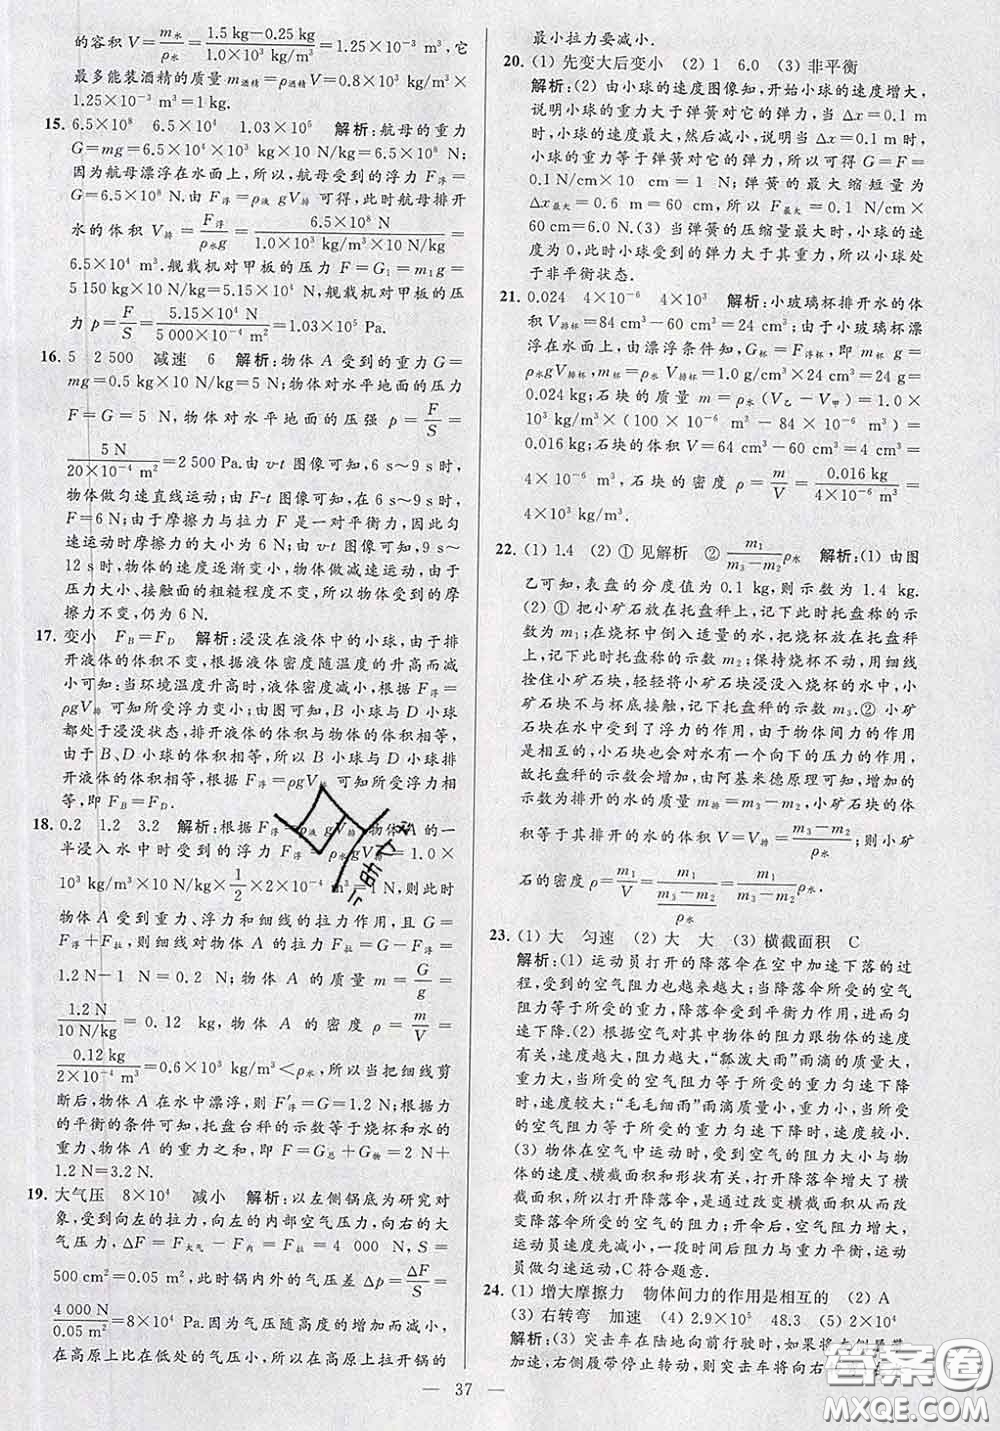 的容积 V=m水/ρ水=(1.5 kg-0.25 kg)/(1.0×10³ kg/m³)=1.25×10⁻³ m³,它
最多能装酒精的质量 m酒精=ρ酒精V=0.8×10³ kg/m³×
1.25×10⁻³ m³=1 kg.
15. 6.5×10⁸ 6.5×10⁴ 1.03×10⁵ 解析:航母的重力
G=mg=6.5×10⁴×10³ kg×10 N/kg=6.5×10⁸ N;
因为航母漂浮在水面上,所以,航母受到的浮力 F浮=
G=6.5×10⁸ N,由 F浮=ρ液 gV排 可得,此时航母排开
水的体积 V排=F浮/(ρ水g)=(6.5×10⁸ N)/(1.0×10³ kg/m³×10 N/kg)=
6.5×10⁴ m³.舰载机对甲板的压力 F=G₁=m₁g=
5 150 kg×10 N/kg=5.15×10⁴ N,舰载机对甲板的压
力 p=F/S=(5.15×10⁴ N)/(5 000×10⁻⁴ m²)=1.03×10⁵ Pa.
16. 5 2 500 减速 6 解析:物体 A 受到的重力 G=
mg=0.5 kg×10 N/kg=5 N;物体对水平地面的压力
F=G=5 N,物体对水平地面的压强 p=F/S=
5 N/(20×10⁻⁴ m²)=2 500 Pa.由 v-t 图像可知,6 s~9 s时,
物体做匀速直线运动;由 F-t 图像可知,在6 s~9 s时
F=6 N;由于摩擦力与拉力 F 是一对平衡力,因此匀
速运动时摩擦力的大小为 6 N;由 v-t 图像可知,9 s~
12 s时,物体的速度逐渐变小,物体做减速运动,由于
压力大小、接触面的粗糙程度不变,所以物体受到的摩
擦力不变,仍为 6 N.
17. 变小 FB=FD 解析:浸没在液体中的小球,由于排
开液体的体积不变,根据液体密度随温度的升高而减
小可知:当环境温度升高时,液体密度减小,根据 F浮=
ρgV排 可知所受浮力变小;由图可知,B 小球与 D 小球
都处于浸没状态,排开液体的体积与物体的体积相等,
由于 B、D 小球的体积相等,所以 B 小球与 D 小球排
开液体的体积相等,根据 F浮=ρgV排 可知所受浮力相
等,即 FB=FD.
18. 0.2 1.2 3.2 解析:根据 F浮=ρ液 gV排,物体A的一
半浸入水中时受到的浮力 F浮=ρ水gV排=1.0×
10³ kg/m³×10 N/kg×1/2×2×10⁻⁴ m³=1 N,则此时
物体 A 受到重力、浮力和细线的拉力作用,且 G=
F浮+F拉,则细线对物体 A 的拉力 F拉=G-F浮=
1.2 N-1 N=0.2 N;物体 A 的质量 m=G/g=
1.2 N/(10 N/kg)=0.12 kg,物体 A 的密度 ρ=m/V=
0.12 kg/(2×10⁻⁴ m³)=0.6×10³ kg/m³<ρ水,所以当把细线剪
断后,物体 A 在水中漂浮,则 F′浮=G=1.2 N;根据力
的平衡的条件可知,托盘台秤的示数等于烧杯和水的
重力、物体 A 的重力之和,即 F=G总+G物=2 N+
1.2 N=3.2 N.
19. 大气压 8×10⁴ 减小 解析:以左侧锅底为研究对
象,受到向左的拉力,向左的内部空气压力,向右的大
气压力,ΔF=F大气-F内=F拉=4 000 N,S=
500 cm²=0.05 m²,此时锅内外的气压差 Δp=ΔF/S=
4 000 N/0.05 m²=8×10⁴ Pa.因为气压随高度的增加而减小,
在高原上比在低处的气压小,所以在高原上拉开锅的
最小拉力要减小.
20. (1) 先变大后变小 (2) 1 6.0 (3) 非平衡
解析:(2) 由小球的速度图像知,开始小球的速度增大,
说明小球的重力大于弹簧对它的弹力,当 Δx=0.1 m
时,小球的速度最大,然后减小,说明当 Δx=0.1 m时,
小球的重力等于弹簧对它的弹力,所以可得 G=F=
0.1 N/cm×10 cm=1 N;弹簧的最大缩短量为
Δx最大=0.6 m=60 cm,所以 F最大=0.1 N/cm
×60 cm=6.0 N.(3) 当弹簧的压缩量最大时,小球的速
度为 0,此时小球受到的弹力大于其重力,所以小球处
于非平衡状态.
21. 0.024 4×10⁻⁶ 4×10³ 解析:小玻璃杯排开水的体
积 V排杯=84 cm³-60 cm³=24 cm³;由于小玻璃杯漂
浮在水面上,由漂浮条件知,G杯=F浮杯,即 m杯 g=
ρ水gV排杯,则 m杯=ρ水 V排杯=1.0 g/cm³×24 cm³=24 g=
0.024 kg;石块的质量 m=ρ水(V乙-V甲)=1.0×
10³ kg/m³×(100×10⁻⁶ m³-84×10⁻⁶ m³)=
0.016 kg;石块的体积 V=64 cm³-60 cm³=4 cm³=
4×10⁻⁶ m³,石块的密度 ρ=m/V=0.016 kg/(4×10⁻⁶ m³)=
4×10³ kg/m³.
22. (1) 1.4 (2) ① 见解析 ② m₁/(m₃-m₂)ρ水 解析:(1) 由图
乙可知,表盘的分度值为 0.1 kg,则示数为 1.4 kg.
(2) ① 把小矿石放在托盘秤上,记下此时托盘称的示
数为 m₁;在烧杯中倒入适量的水,把烧杯放在托盘秤
上,记下此时托盘称的示数 m₂;保持烧杯不动,用细线
拴住小矿石块,轻轻将小矿石块浸没入烧杯的水中,小
矿石块不与杯底接触,记下托盘秤的示数 m₃.② 小矿
石块在水中受到了浮力的作用,由于物体间力的作用
是相互的,小石块也会对水有一个向下的压力的作用,
故托盘秤的示数会增加,由阿基米德原理可知,增加的
示数为排开的水的质量 m排=m₃-m₂,小矿石块的体
积等于其排开的水的体积 V=V排=(m₃-m₂)/ρ水;则小矿
石的密度 ρ=m₁/V=m₁/((m₃-m₂)/ρ水)=m₁/(m₃-m₂)ρ水.
23. (1) 大 匀速 (2) 大 大 (3) 横截面积 C
解析:(1) 运动员打开的降落伞在空中加速下落的过
程,受到的空气阻力也越来越大;当降落伞所受的空气
阻力等于所受的重力,降落伞受到平衡力作用,进而匀
速下降.(2) 根据空气对其中物体的阻力跟物体的速度
有关,速度越大,阻力越大,“瓢泼大雨”雨滴的质量大,
重力大,当所受的空气阻力等于所受的重力匀速下降
时,速度较大;“毛毛细雨”雨滴质量小,重力小,当所受
的空气阻力等于所受的重力匀速下降时,速度较小.
(3) 物体在空气中运动时,受到的空气阻力大小与物体
的速度、横截面积和形状有关,打开降落伞,增大了横
截面积,所以,降落伞可能是通过改变横截面积从而改
变降落伞所受的空气的阻力;开伞后,空气阻力增大,
运动员速度先减小,一段时间后阻力与重力平衡,运动
员做匀速运动,C 符合题意.
24. (1) 增大摩擦力 物体间力的作用是相互的 (2) A
(3) 右转弯 加速 (4) 2.9×10⁵ 48.3 (5) 2×10⁴
解析:(3) 突击车在陆地向前行驶时,如果将左侧履带
加速,右侧履带停止转动,则突击车将向右
— 37 —
答案卷
MXQE.COM